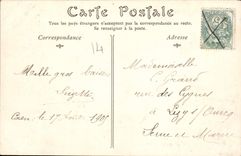 Carte Postale
Tous les pays étrangers n'acceptent pas la correspondance au recto.
Se renseigner à la poste.
Correspondance
Adresse
14
Mademoiselle
C. Girard
rue des Cygnes
à Lizy s/ Ourcq
Seine et Marne
Meille gros
Suzette
Caen le 17